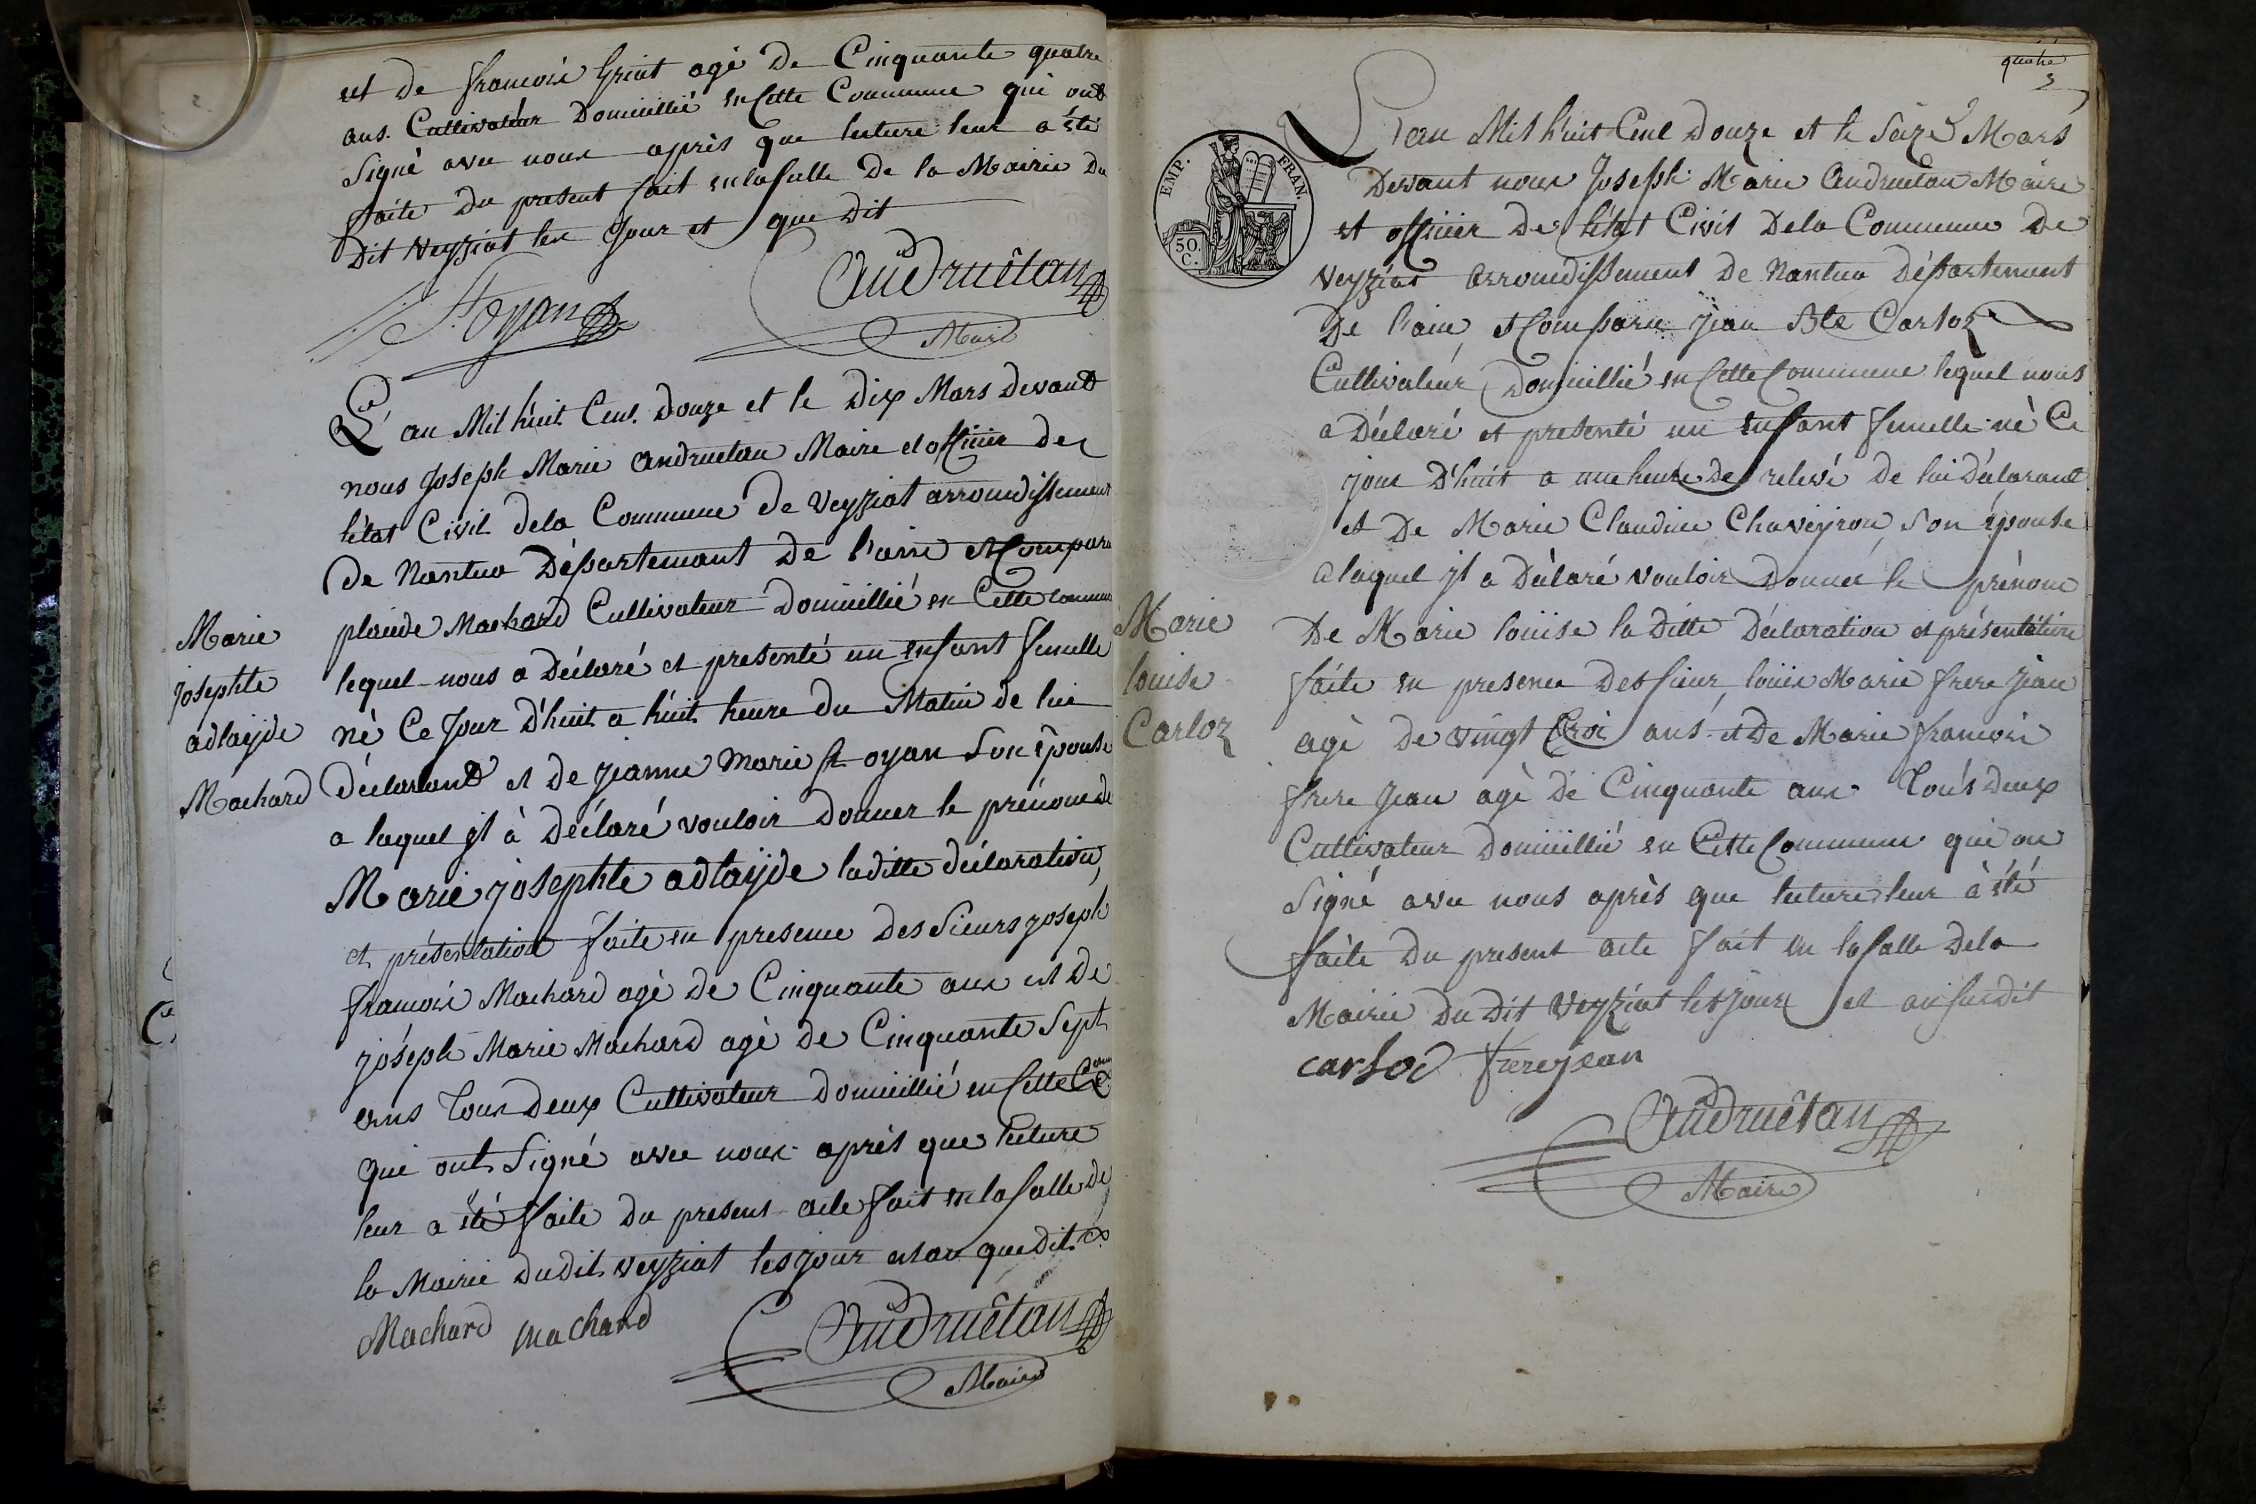 et de francois Griat agé de Cinquante quatre
ans. Cultivateur Domicillié en Cette Commune qui ont
Signé avec nous après que lecture leur a été
faite Du present fait en la salle De la Mairie Du
Dit Veyziat les Jour et que dit
St. oyan
Andruêtan
Maire
L'an Mil huit Cent Douze et le Dix Mars Devant
nous Joseph Marie andruetan Maire et officier De
l'état Civil dela Commune de Veyziat arrondissement
De Nantua Département De l'ain et Compare
plaude Machard Cultivateur Domicillié en Cette commune
lequel nous a Déclaré et presenté un enfant femelle
né Ce Jour D'huit a huit heure du Matin de lui
déclarant et de jeanne Marie St oyan Son épouse
a laquel jl à Déclaré vouloir Donner le prénom de
Marie josephte adlayde laditte déclaration,
et présentation faite en presence des Sieurs joseph
francois Machard agé de Cinquante ans et De
joseph Marie Machard agé de Cinquante Sept
ans tous Deux Cultivateur domicillié en Cette Cne
qui ont Signé avec nous après que lecture
leur a été faite du present acte fait en la salle de
la Mairie dudit Veyziat les jour et an que dit
Machard machard
Andruêtan
Maire
Marie
josephte
adlayde
Machard
quatre
L'an Mil huit Cent Douze et le Saize Mars
Devant nous Joseph Marie Andruetan Maire
et officier De l'état Civil Dela Commune De
Veyziat arrondissement De Nantua Département
De l'ain, et Comparu jean Bte Carloz
Cultivateur Domicillié en Cette Commune lequel nous
a Déclaré et presenté un enfant femelle né Ce
jour D'huit a une heure de relevé De lui Déclarant
et De Marie Claudine Chaveyron, Son épouse
a laquel jl a Déclaré vouloir Donner le prénom
De Marie louise la Ditte Déclaration et présentation
faite en presence Des sieur louis Marie frere jean
agé De vingt troi ans et De Marie francois
frere jean agé De Cinquante ans tous Deux
Cultivateur domicillié en Cette Commune qui on
Signé avec nous après que lecture leur à été
faite Du present acte fait en la salle Dela
Mairie Du Dit Veyziat les jour et an susdit
carloz frerejean
Andruêtan
Maire
EMP. FRAN.
50.
C.
Marie
louise
Carloz